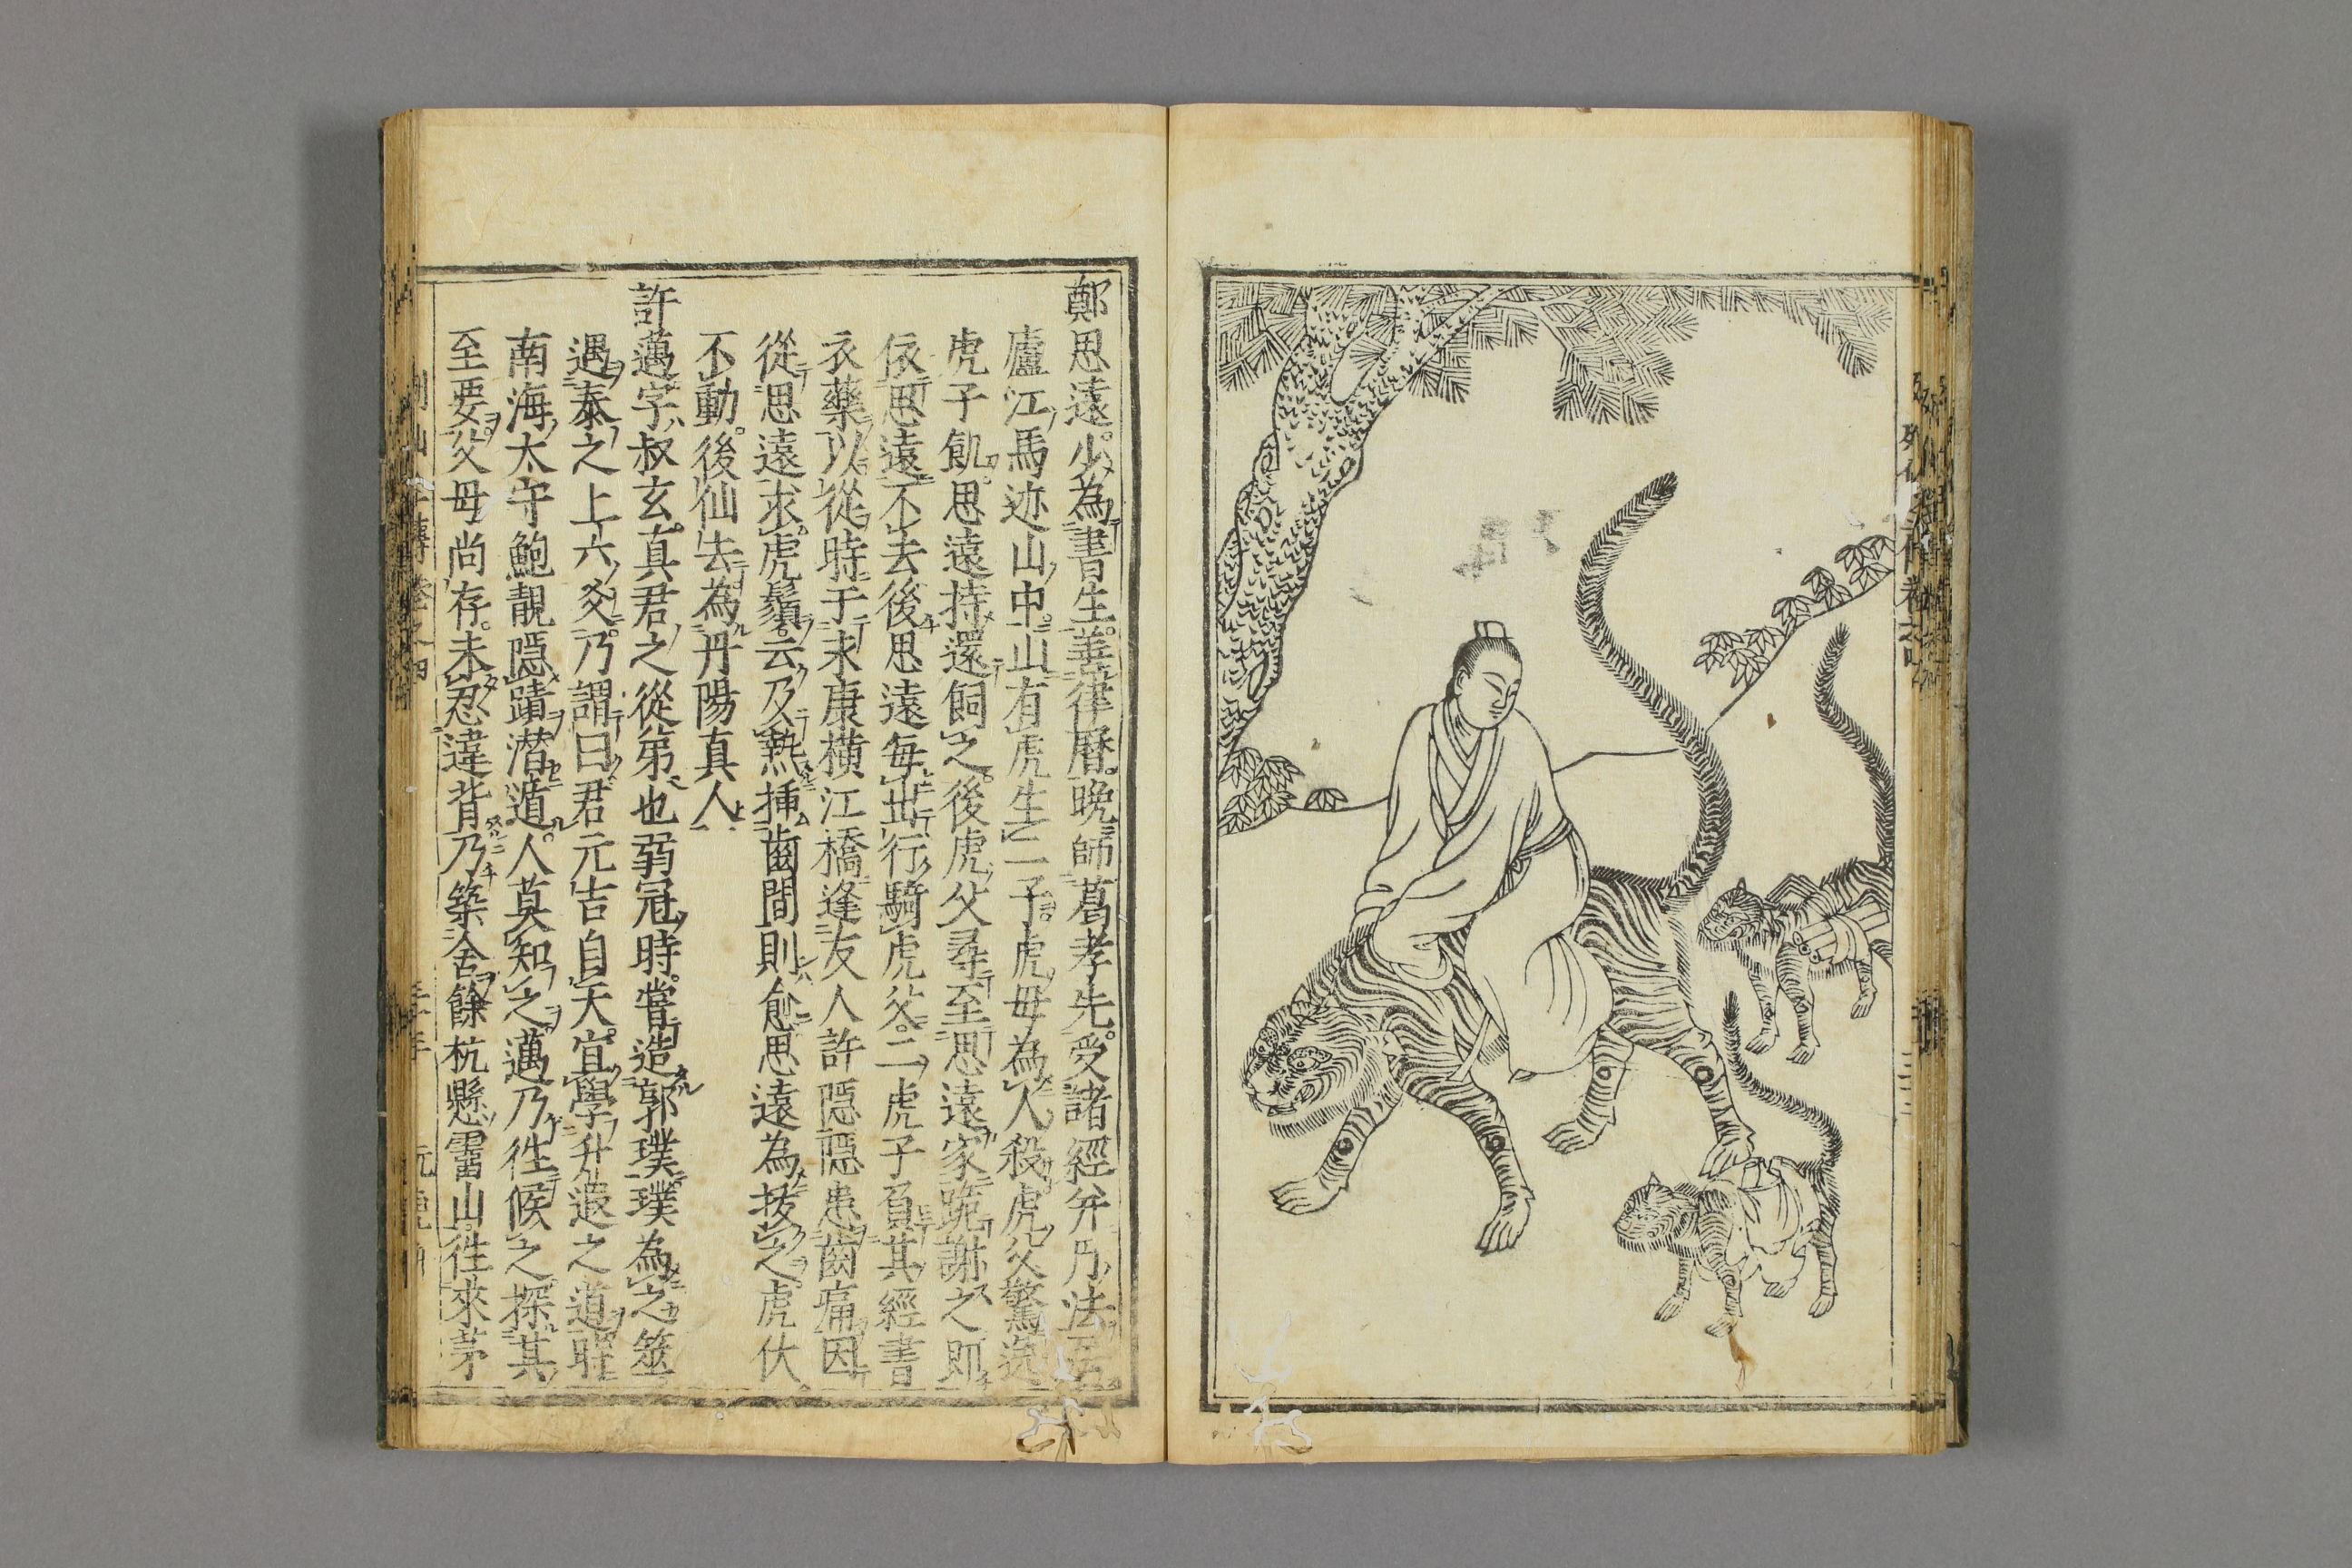 鄭思遠少為書生善律曆晩師葛孝先受諸經并乃法
廬江馬迹山中山有虎生二子虎母為人殺虎父驚逸
虎子飢思遠持還飼之後虎父尋至思遠家跪謝之即
依思遠不去後思遠每出行騎虎父二虎子負其經書
衣藥以從時于永康橫江橋逢友人許隱隱患齒痛因
從思遠求虎鬚云及熱揷齒間則愈思遠為拔之虎伏
不動後仙去為丹陽真人
許邁字叔玄真君之從弟也弱冠時嘗造郭璞璞為之筮
遇泰之上六爻乃謂曰君元吉自天宜學升遐之道時
南海太守鮑靚隱蹟潛遁人莫知之邁乃往候之探其
至要父母尚存未忍違背乃築舍餘杭懸霤山往來茅